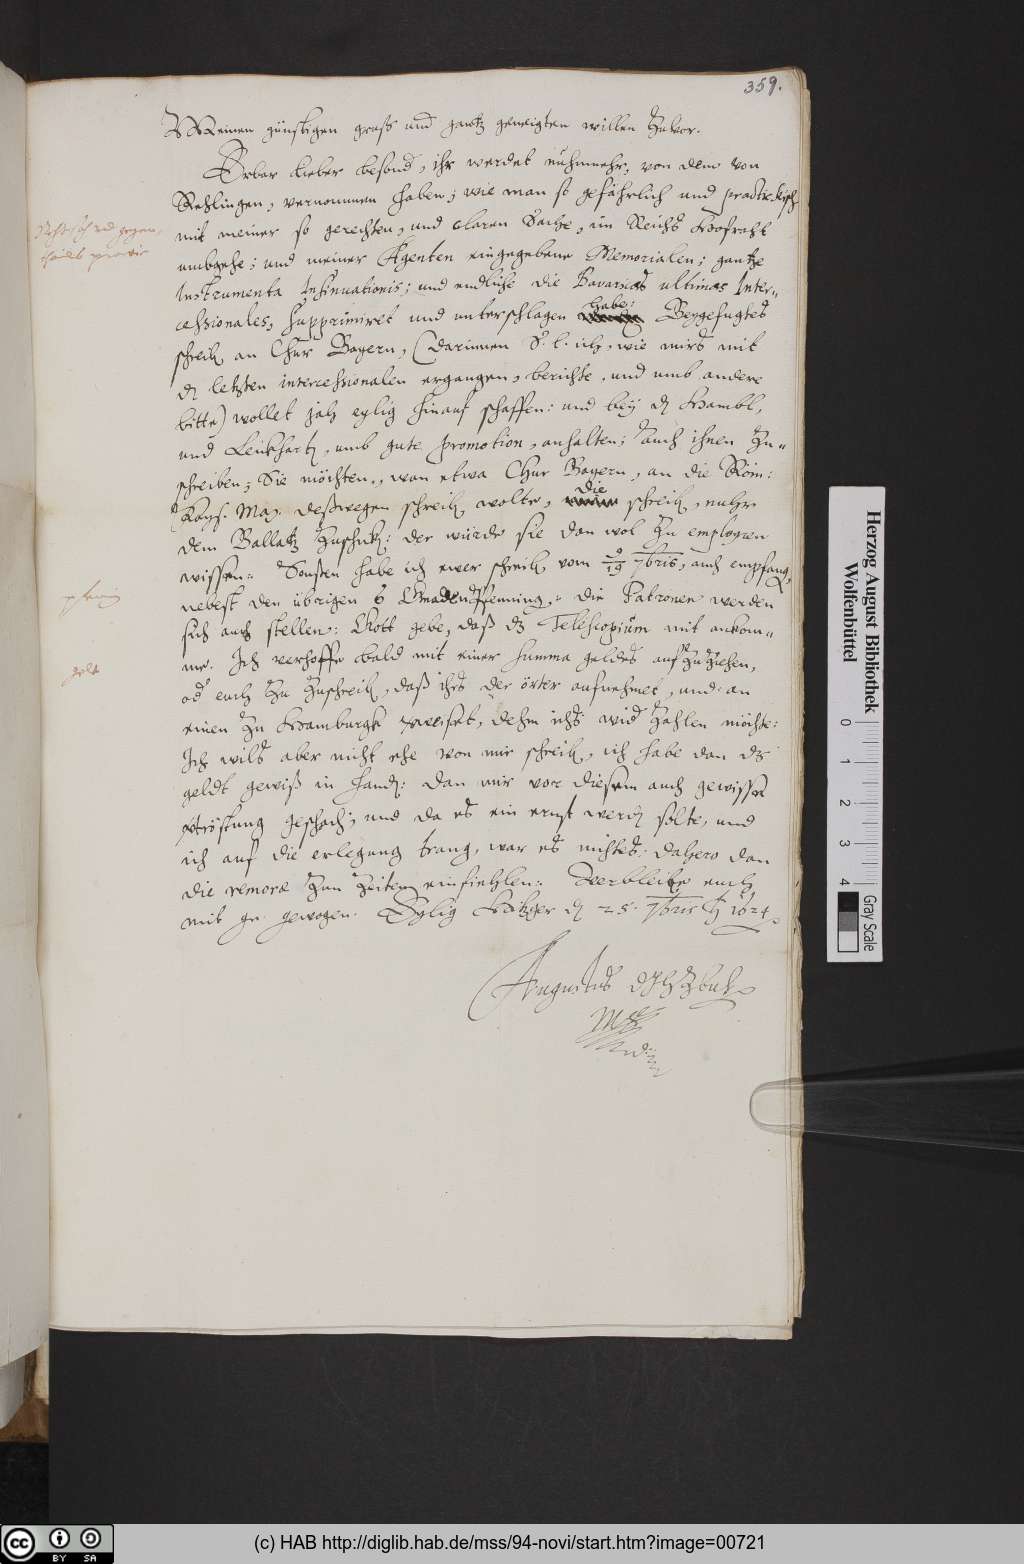 359.
Meinen günstigen gruß und gantz geneigten willen zuvor.
Erbar lieber besond, ihr werdet nuhnmehr, von dem von
Rehlingen, vernommen haben; wie man so gefährlich und
mit meiner so gerechten, und claren Sache, im Reichs Hofraht
umbgehe; und meiner Agenten eingegebene Memorialen; gantze
Instrumenta Insinuationis; und endliche die Bavaricas ultimas Inter-
cessionales, supprimiret und unterschlagen habe: Beygefugtes
schreib an Chur Bayern, (darinnen S. l. ich, wie mirs mit
den letzten intercessionalen ergangen, berichte, und umb andere
bitte) wollet jah eylig hinauf schaffen: und bey
und Leukhart, umb gute promotion, anhalten; auch ihnen zu-
schreiben; Sie möchten, wan etwa Chur Bayern, an die Röm:
Kays. May. deßwegen schreib wolte, die schreib, nuhr
dem Ballatz zuschick: der würde sie dan wol zu employren
wissen. Sonsten habe ich ewer schreib vom 9/19 7bris, auch empfang,
nebest den übrigen 6 Gnaden Pfenning: die Patronen werden
sich auch stellen: Gott gebe, daß dz Telescopium mit ankom-
me. Ich verhoffe bald mit einer summa geldes aufzuziehen,
od euch zu zuschreib, daß ihrs der örter aufnehmet, und an
einen zu Hamburgk weiset, dehm ichs wid zahlen möchte:
Ich wils aber nicht ehe von mir schreib, ich habe dan dz
geldt gewiß in hand: dan mir vor diesem auch gewisse
vertröstung geschach; und da es ein ernst werd solte, und
ich auf die erlegung trang, war es nichts: dahero dan
die remorae zun zeiten einfiehlen. Verbleibe euch
mit gn. gewogen. Eylig Hitzger den 25. 7bris 1624.
Augustus
Herzog August Bibliothek
Wolfenbüttel
0 1 2 3 4
Gray Scale
cc BY SA
(c) HAB http://diglib.hab.de/mss/94-novi/start.htm?image=00721